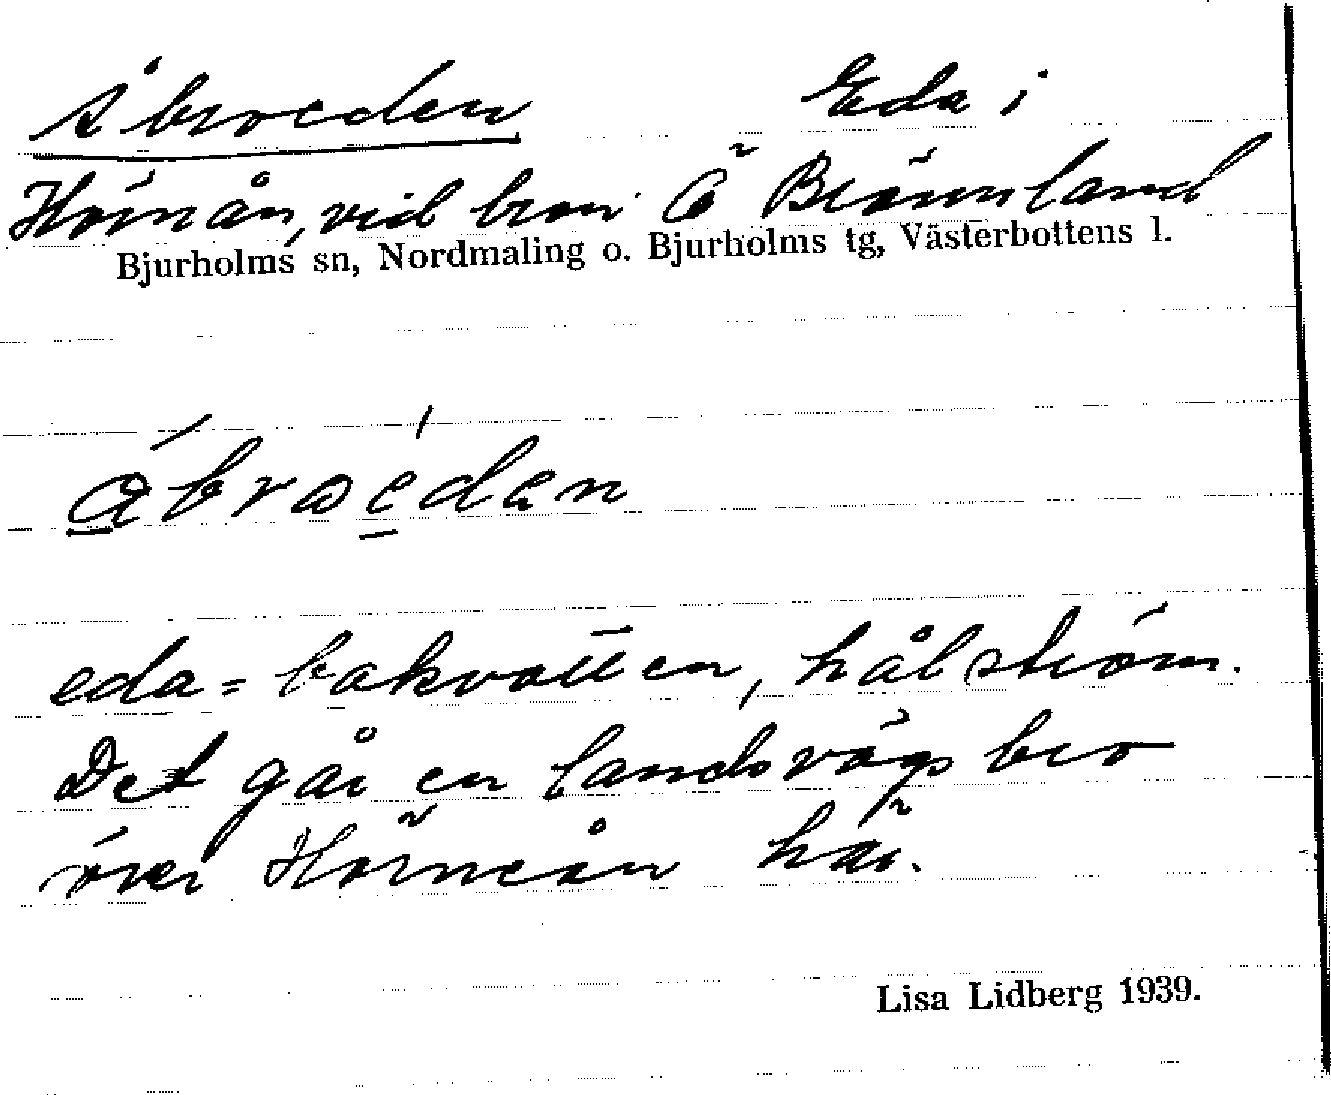 Åbroeden Eda i
Hörnån, vid bron Ö Brännland
Bjurholms sn, Nordmaling o. Bjurholms tg, Västerbottens l.
åbroédan
eda = bakvatten, hålström.
Det går en landsvägsbro
över Hörneån här.
Lisa Lidberg 1939.